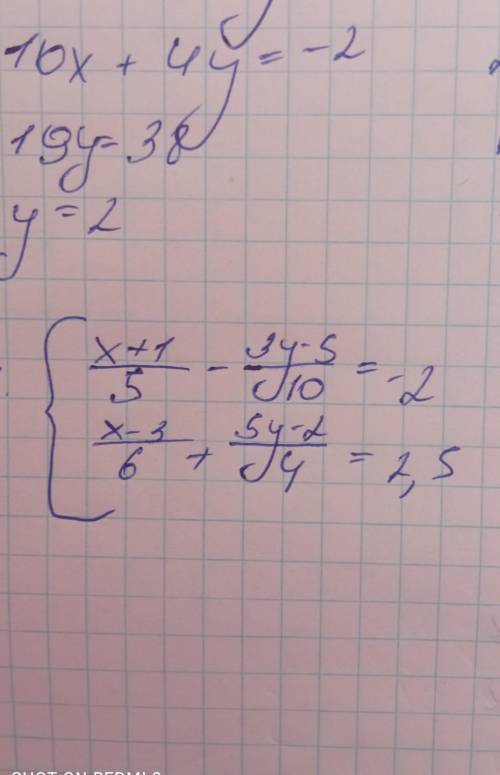 10x + 4y = -2
19y = 38
y = 2
x+1/5 - 3y-5/10 = -2
x-3/6 + 5y-2/4 = 2,5
SHOT ON REDMI 9